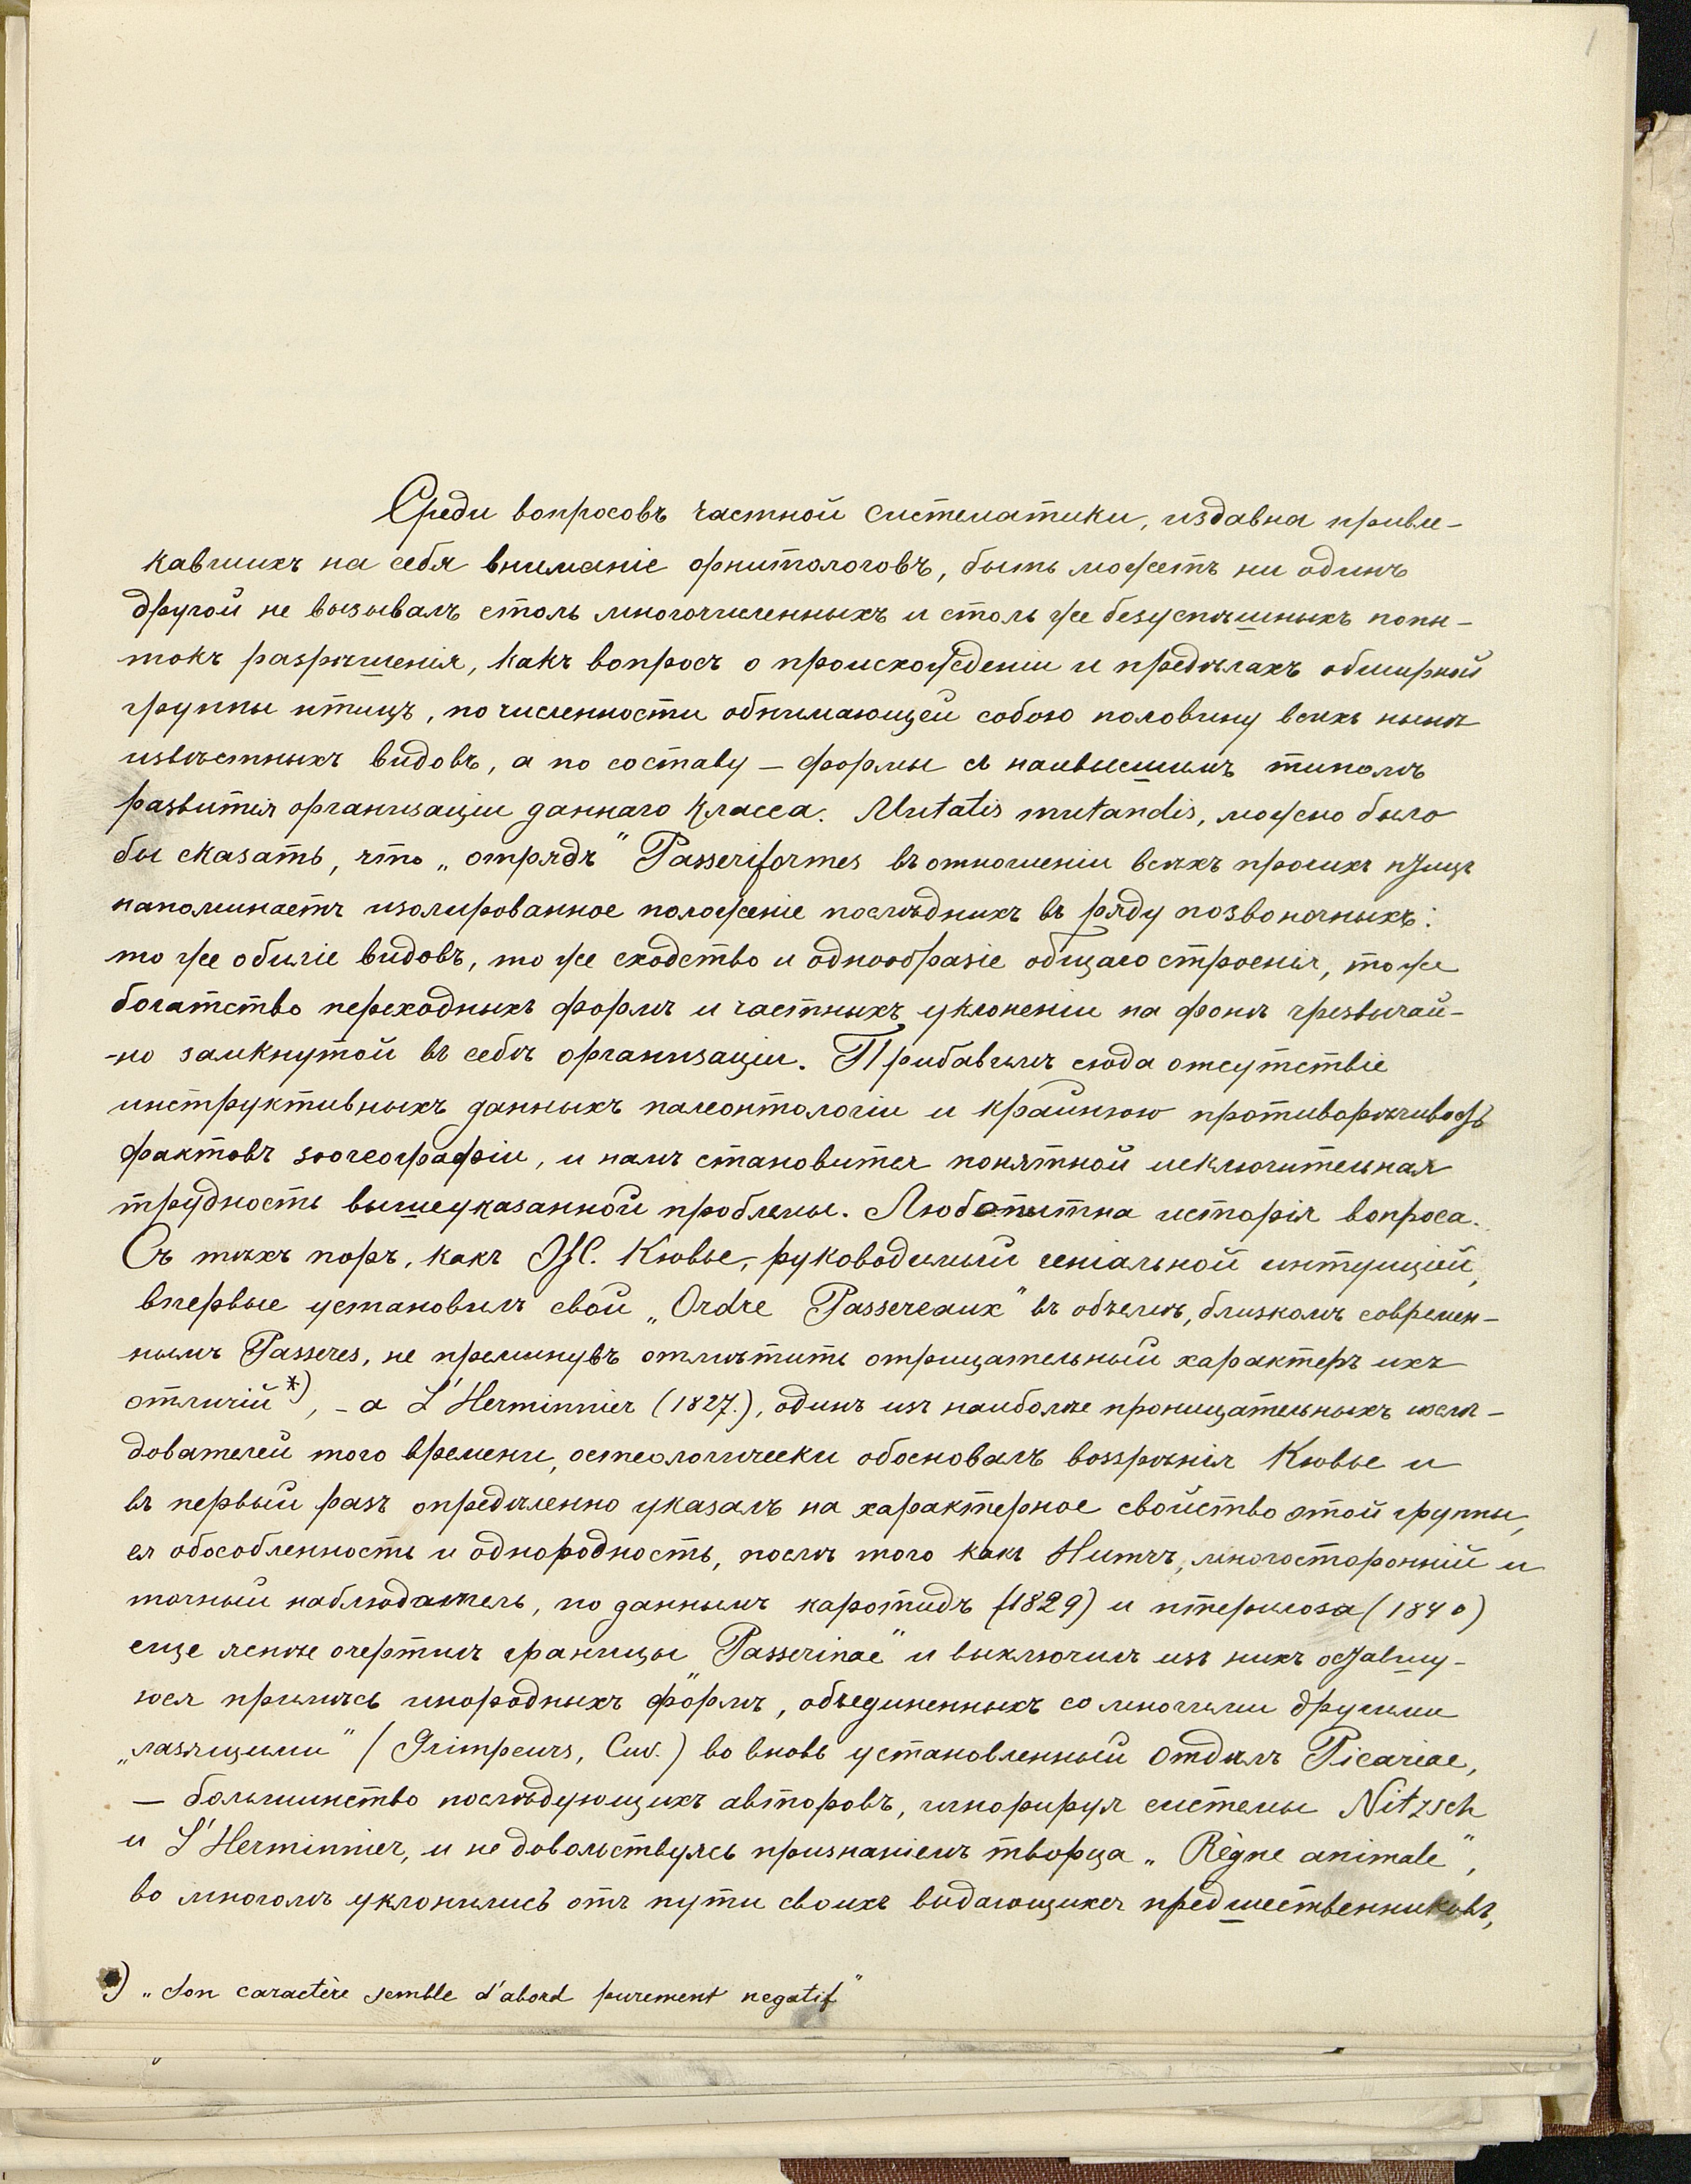 1
Среди вопросовъ частной систематики, издавна привле-
кавшихъ на себя вниманіе орнитологовъ, быть можетъ ни одинъ
другой не вызывалъ столь многочисленныхъ и столь же безуспѣшныхъ попы-
токъ разрѣшенія, какъ вопросъ о происхожденіи и предѣлахъ обширной
группы птицъ, по численности обнимающей собою половину всѣхъ нынѣ
извѣстныхъ видовъ, а по составу – формы съ наивысшимъ типомъ
развитія организаціи даннаго класса. Mutatis mutandis, можно было
бы сказать, что „отрядъ" Passeriformes въ отношеніи всѣхъ прочихъ птицъ
напоминаетъ изолированное положеніе послѣднихъ въ ряду позвоночныхъ:
то же обиліе видовъ, то же сходство и однообразіе общаго строенія, то же
богатство переходныхъ формъ и частныхъ уклоненій на фонѣ чрезвычай-
-но замкнутой въ себѣ организаціи. Прибавимъ сюда отсутствіе
инструктивныхъ данныхъ палеонтологіи и крайнюю противорѣчивость
фактовъ зоогеографіи, и намъ становится понятной исключительная
трудность вышеуказанной проблемы. Любопытна исторія вопроса.
Съ тѣхъ поръ, какъ Ж. Кювье, руководимый геніальной интуиціей,
впервые установилъ свой „Ordre Passereaux" въ объемѣ, близкомъ современ-
нымъ Passeres, не преминувъ отмѣтить отрицательный характеръ ихъ
отличій*), – а L'Herminnier (1827.), одинъ изъ наиболѣе проницательныхъ изслѣ-
дователей того времени, остеологически обосновалъ воззрѣнія Кювье и
въ первый разъ опредѣленно указалъ на характерное свойство этой группы,
ея обособленность и однородность, послѣ того какъ Нитчъ, многосторонній и
точный наблюдатель, по даннымъ каротидъ (1829) и птерилоза (1840)
еще яснѣе очертилъ границы „Passerinae" и выключилъ изъ нихъ оставшу-
юся примѣсь инородныхъ формъ, объединенныхъ со многими другими
„лазящими" (Grimpeurs, Cuv.) во вновь установленный отдѣлъ Picariae,
– большинство послѣдующихъ авторовъ, игнорируя системы Nitzsch
и L'Herminnier, и не довольствуясь признаніемъ творца „Règne animale",
во многомъ уклонились отъ пути своихъ выдающихся предшественниковъ,
*) „Son caractère semble d'abord purement negatif"